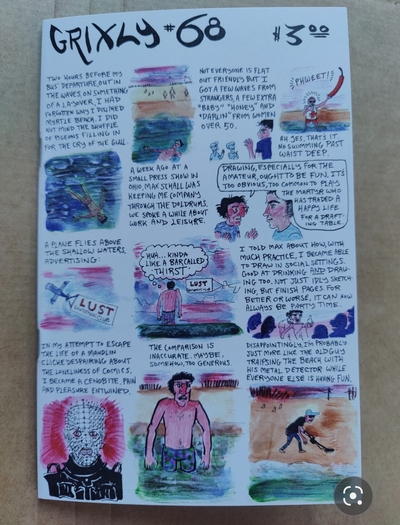 GRIXLY #68
$3.00
TWO HOURS BEFORE MY
BUS' DEPARTURE, OUT IN
THE WAVES, ON SOMETHING
OF A LAYOVER, I HAD
FORGOTTEN WHY I DISLIKED
MYRTLE BEACH. I DID
NOT MIND THE SHUFFLE
OF PIGEONS FILLING IN
FOR THE CRY OF THE GULL.
NOT EVERYONE IS FLAT
OUT FRIENDLY BUT I
GOT A FEW WAVES FROM
STRANGERS, A FEW EXTRA
"BABY" "HONEY" AND
"DARLIN'" FROM WOMEN
OVER 50.
PHWEET!
AH YES, THAT'S IT.
NO SWIMMING PAST
WAIST DEEP.
A WEEK AGO AT A
SMALL PRESS SHOW IN
OHIO, MAX SCHALL WAS
KEEPING ME COMPANY
THROUGH THE DOLDRUMS.
WE SPOKE A WHILE ABOUT
WORK AND LEISURE.
DRAWING, ESPECIALLY FOR THE
AMATEUR, OUGHT TO BE FUN. IT'S
TOO OBVIOUS, TOO COMMON TO PLAY
THE MARTYR WHO
HAS TRADED A
HAPPY LIFE
FOR A DRAFT-
ING TABLE
A PLANE FLIES ABOVE
THE SHALLOW WATERS,
ADVERTISING:
LUST
HUH... KINDA
LIKE A BAR CALLED
THIRST
LUST
I TOLD MAX ABOUT HOW, WITH
MUCH PRACTICE, I BECAME ABLE
TO DRAW IN SOCIAL SETTINGS.
GOOD AT DRINKING AND DRAW-
ING TOO. NOT JUST IDLY SKETCH-
ING BUT FINISH PAGES FOR
BETTER OR WORSE, IT CAN NOW
ALWAYS BE PARTY TIME.
IN MY ATTEMPT TO ESCAPE
THE LIFE OF A MAUDLIN
CLICHE DESPAIRING ABOUT
THE LONELINESS OF COMICS,
I BECAME A CENOBITE, PAIN
AND PLEASURE ENTWINED.
THE COMPARISON IS
INACCURATE. MAYBE,
SOMEHOW, TOO GENEROUS.
DISAPPOINTINGLY, I'M PROBABLY
JUST MORE LIKE THE OLD GUY
TRAIPSING THE BEACH WITH
HIS METAL DETECTOR WHILE
EVERYONE ELSE IS HAVING FUN.